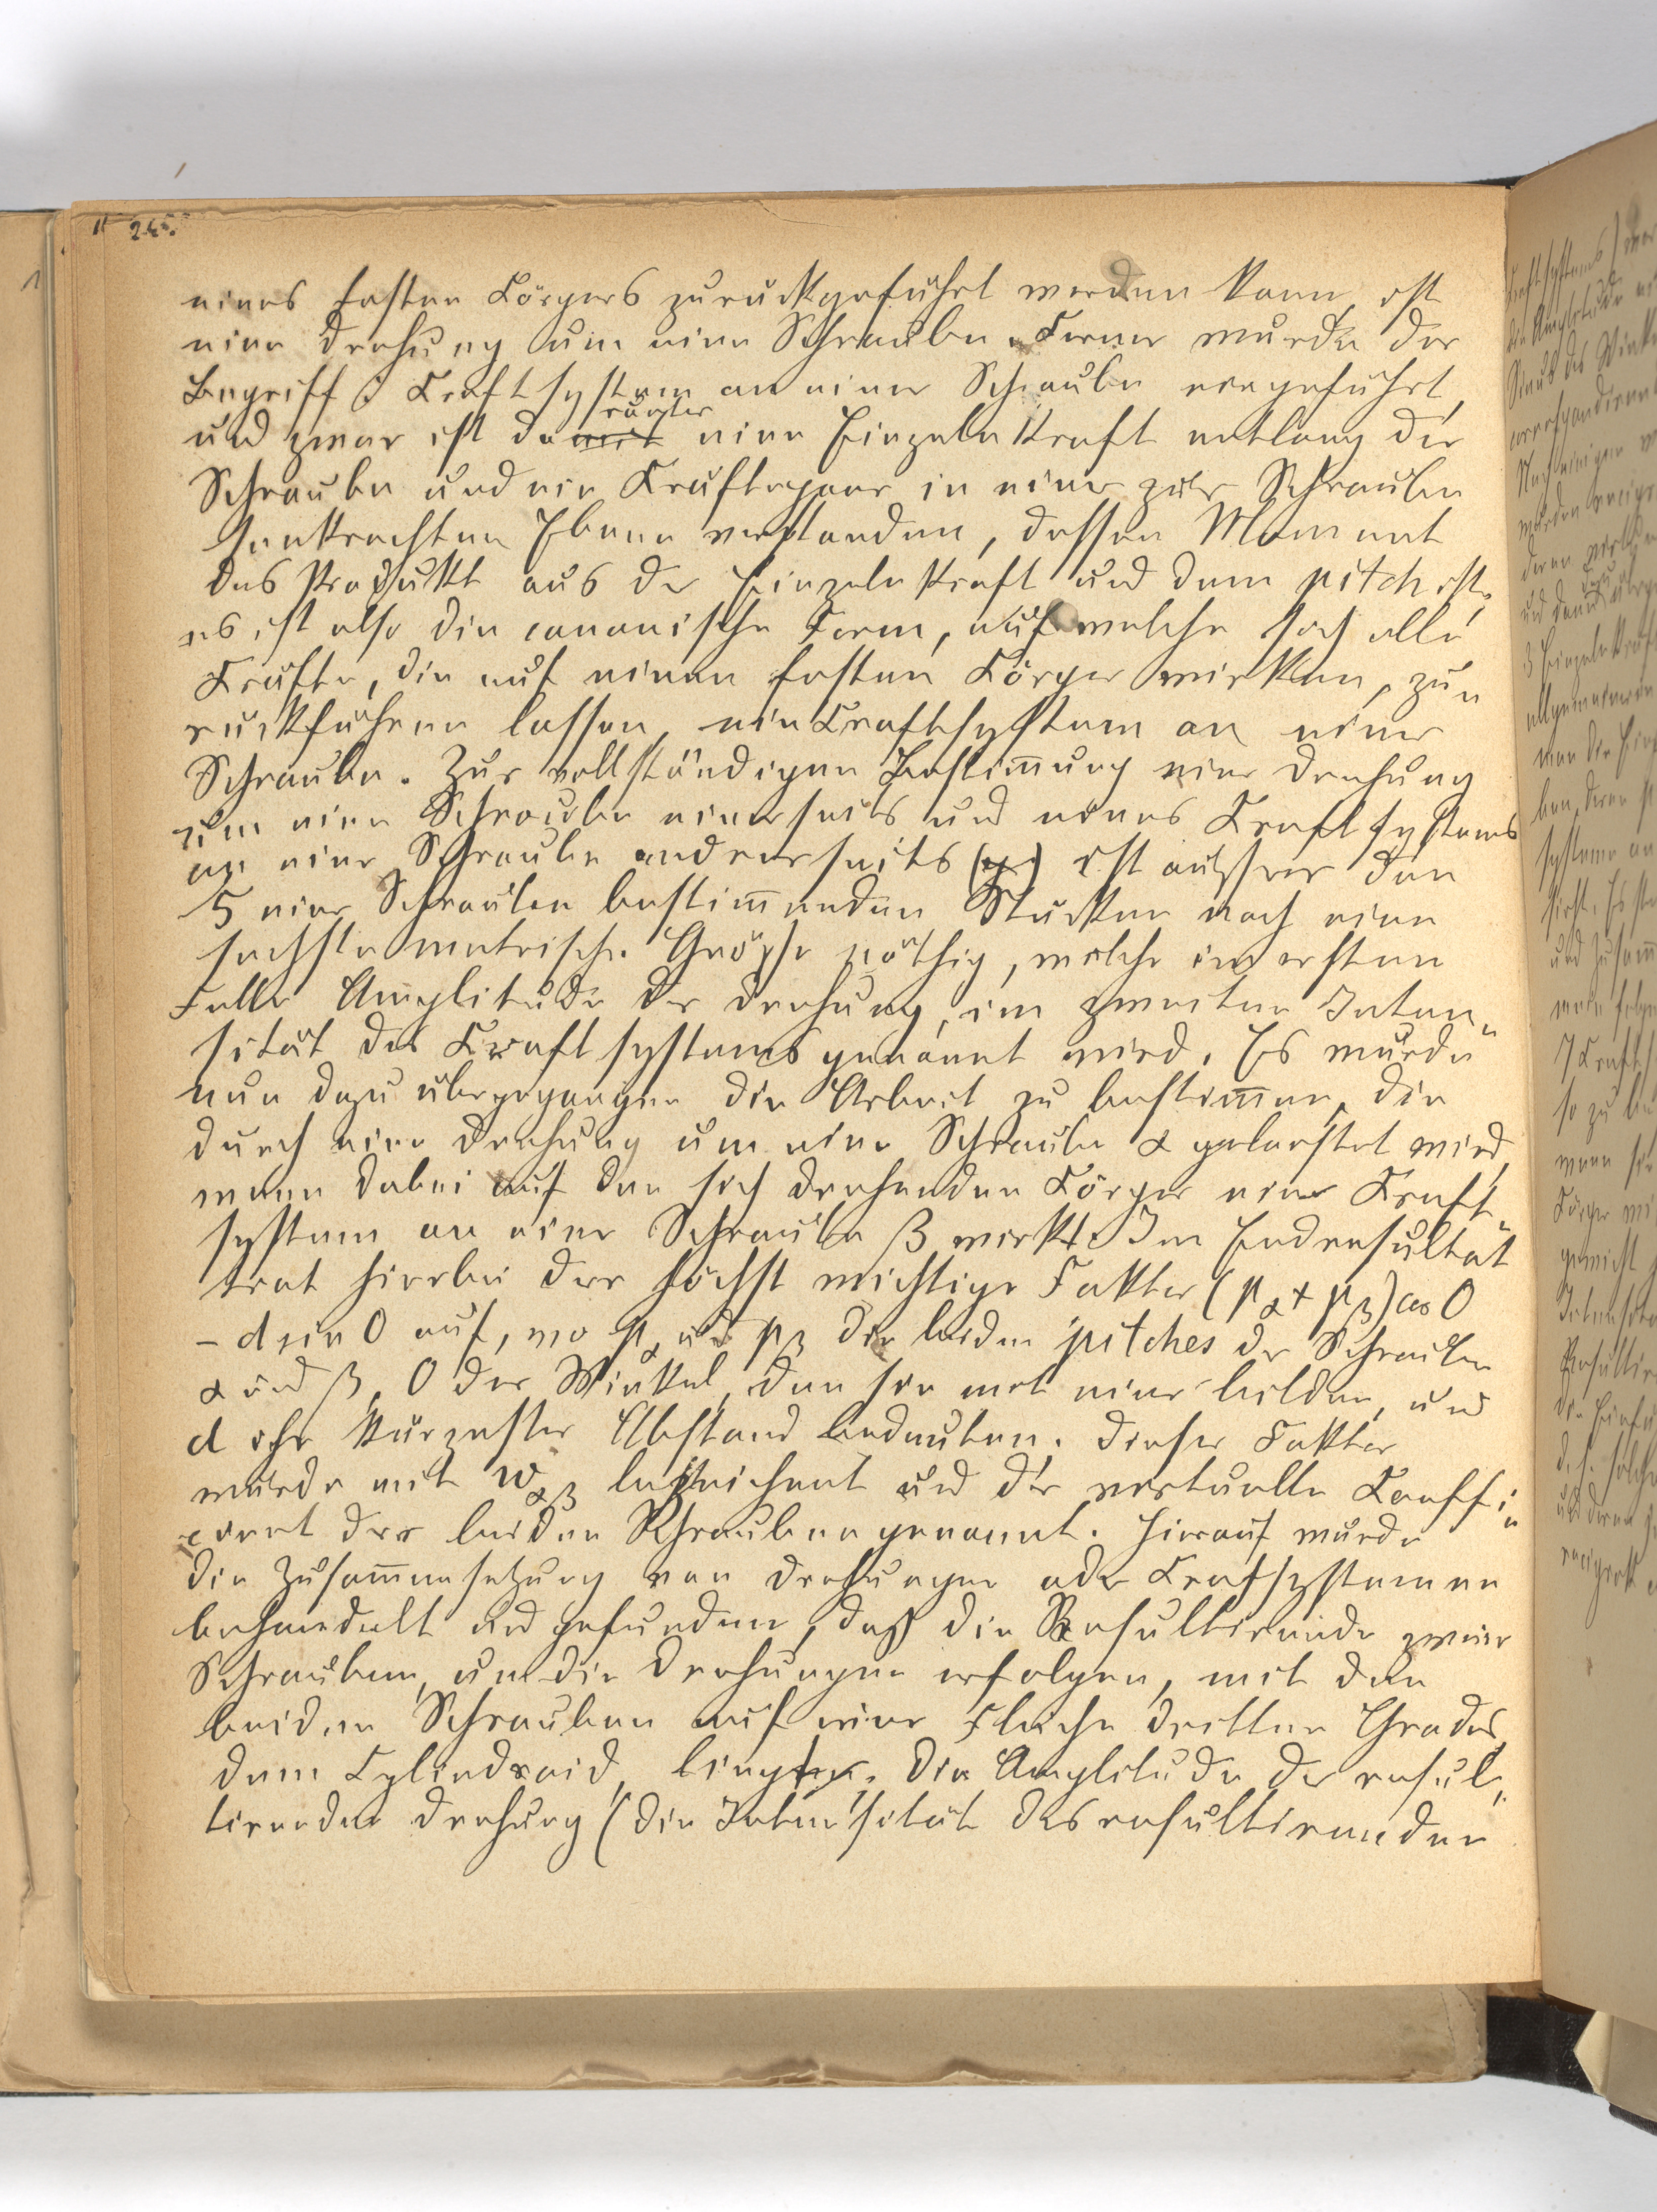 245.
eines festen Körpers zurückgeführt werden kann, ist
eine Drehung um eine Schraube. Ferner wurde der
Begriff: Kraftsystem an einer Schraube eingeführt,
und zwar ist darunter eine Einzelnkraft entlang der
Schraube und ein Kräftepaar in einer zur Schraube
senkrechten Ebene verstanden, dessen Moment
das Produkt aus der Einzelnkraft und dem pitch ist.
es ist also die canonische Form, auf welche sich alle
Kräfte, die auf einen festen Körper wirken, zu„
rückführen lassen, ein Kraftsystem an einer
Schraube. Zur vollständigen Bestim̅ung einer Drehung
um eine Schraube einerseits und eines Kraftsystems
an einer Schraube andrerseits ist ausser den
5 eine Schraube bestim̅enden Stücken noch eine
sechste metrische Grösse nöthig, welche im ersten
Falle Amplitude der Drehung, im zweiten Inten„
sität des Kraftsystems genannt wird. Es wurde
nun dazu übergegangen die Arbeit zu bestim̅en, die
durch eine Drehung um eine Schraube α geleistet wird,
wenn dabei auf den sich drehenden Körper ein Kraft„
system an einer Schraube β wirkt. Im Endresultat
trat hierbei der höchst wichtige Faktor (p_α + p_β) cos O
– d sin O auf, wo p_α und p_β die beiden pitches der Schrauben
α und β, O der Winkel, den sie mit einer bilden, und
d ihr kürzester Abstand bedeuten. Dieser Faktor
wurde mit w_αβ bezeichnet und der virtuelle Coeffi„
cient der beiden Schrauben genannt. Hierauf wurde
die Zusam̅ensetzung von Drehungen oder Kraftsystemen
behandelt und gefunden, daß die Resultirende zweier
Schrauben, um die Drehungen erfolgen, mit den
beiden Schrauben auf einer Fläche dritten Grades,
dem Cylindroid, liegt. Die Amplitude der resul„
tirenden Drehung (die Intensität des resultirenden